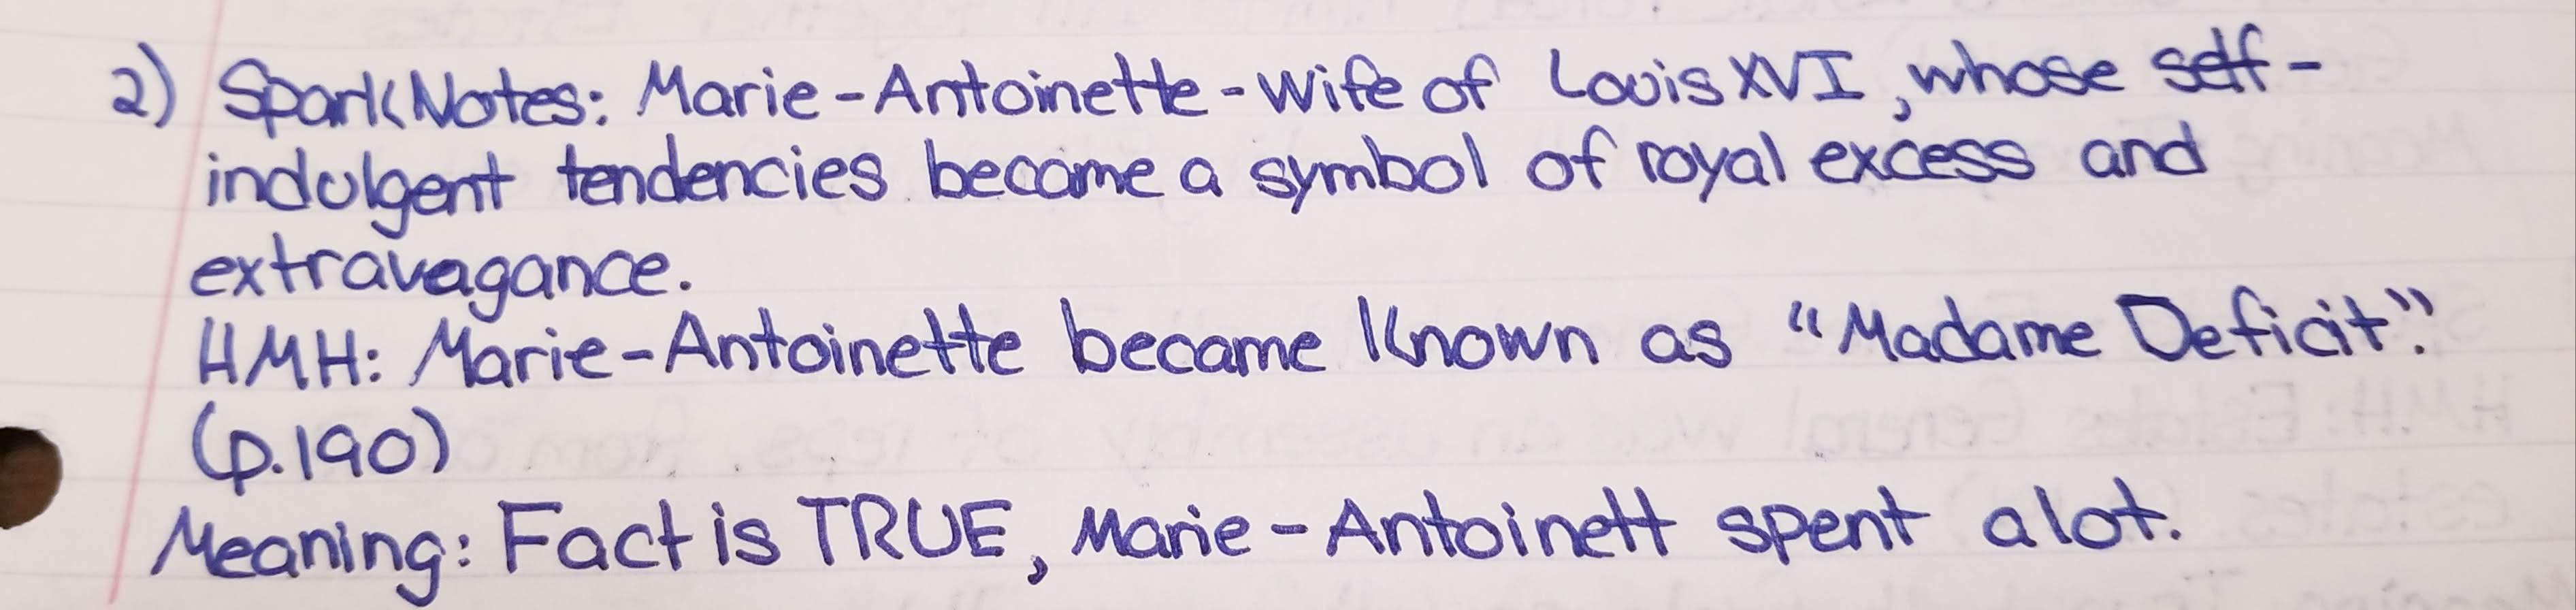 2) SparkNotes: Marie-Antoinette - Wife of Louis XVI, whose self-
indulgent tendencies became a symbol of royal excess and
extravagance.
HMH: Marie-Antoinette became known as "Madame Deficit".
(p.190)
Meaning: Fact is TRUE, Marie-Antoinett spent a lot.